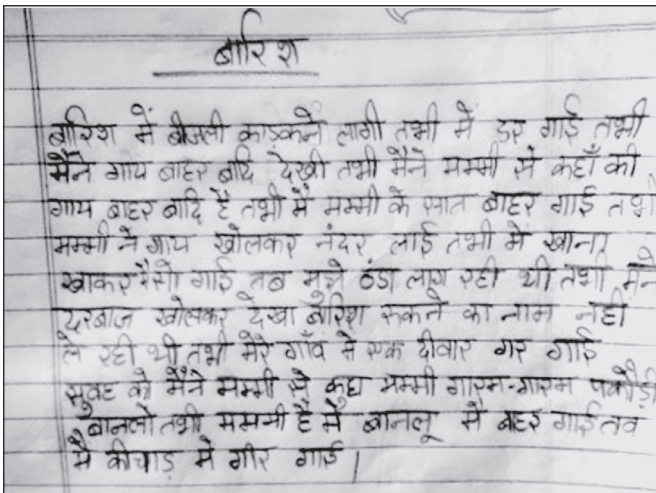 बारिश
बारिश में बीजली काड़कने लागी तभी में डर गाई तभी
मैने गाय बाहर बादि देखी तभी मैने मम्मी से कहाँ की
गाय बाहर बादि है तभी में मम्मी के सात बाहर गाई तभी
मम्मी ने गाय खोलकर नंदर लाई तभी में खाना
खाकर गाई तब मुझे ठंडा लाग रही थी तभी मैने
दरबाज खोलकर देखा बारिश रुकने का नाम नहीं
ले रही थी तभी मेरे गाँव मे एक दीवार गर गाई
सुवह को मैंने मम्मी से कुछ मम्मी गारम-गारम पकोड़ी
बानलो तभी मममी है मै बानलू मै बाहर गाई तव
मै कीचाड़ मे गीर गाई।